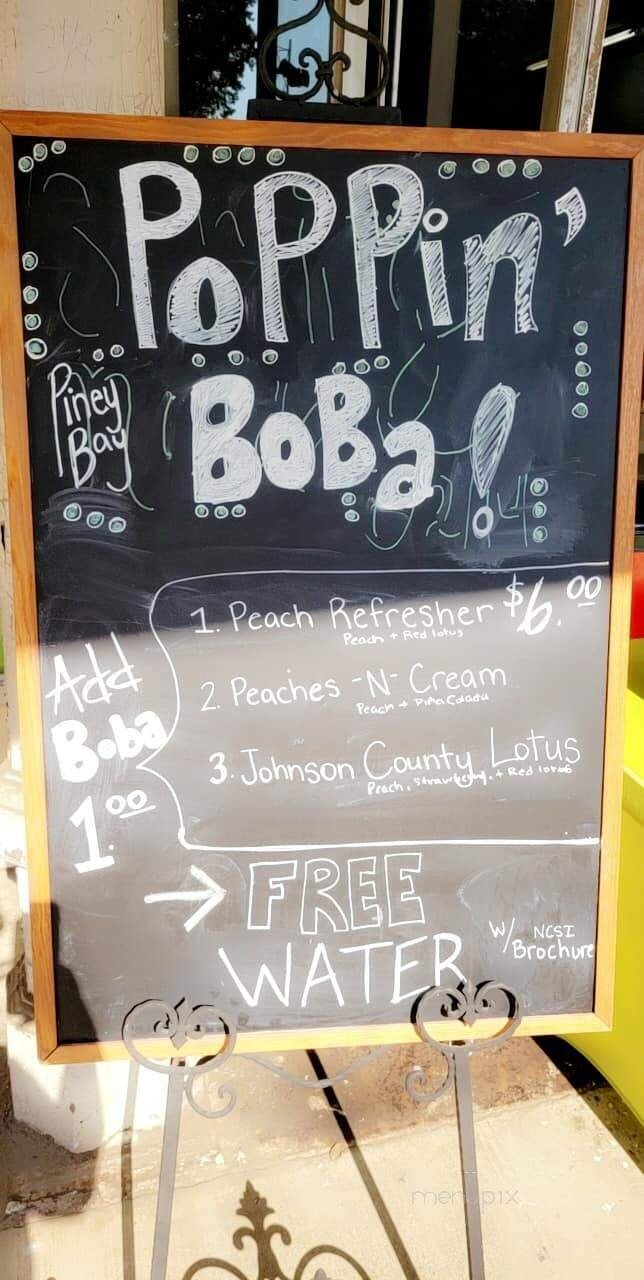 PoPPin'
BoBa!
Piney
Bay
1. Peach Refresher $6.00
Peach + Red lotus
2. Peaches -N- Cream
Peach + Piña Colada
3. Johnson County Lotus
Peach, Strawberry, + Red lotus
Add
Boba
1.00
→ FREE
WATER
W/ NCSI
Brochure
menupix